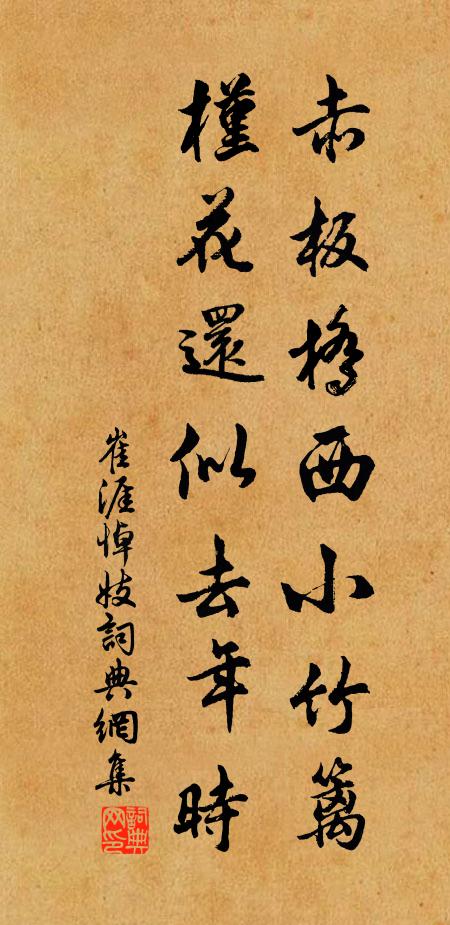 赤板橋西小竹籬
槿花還似去年時
崔涯悼妓詞典網集
詞典網印